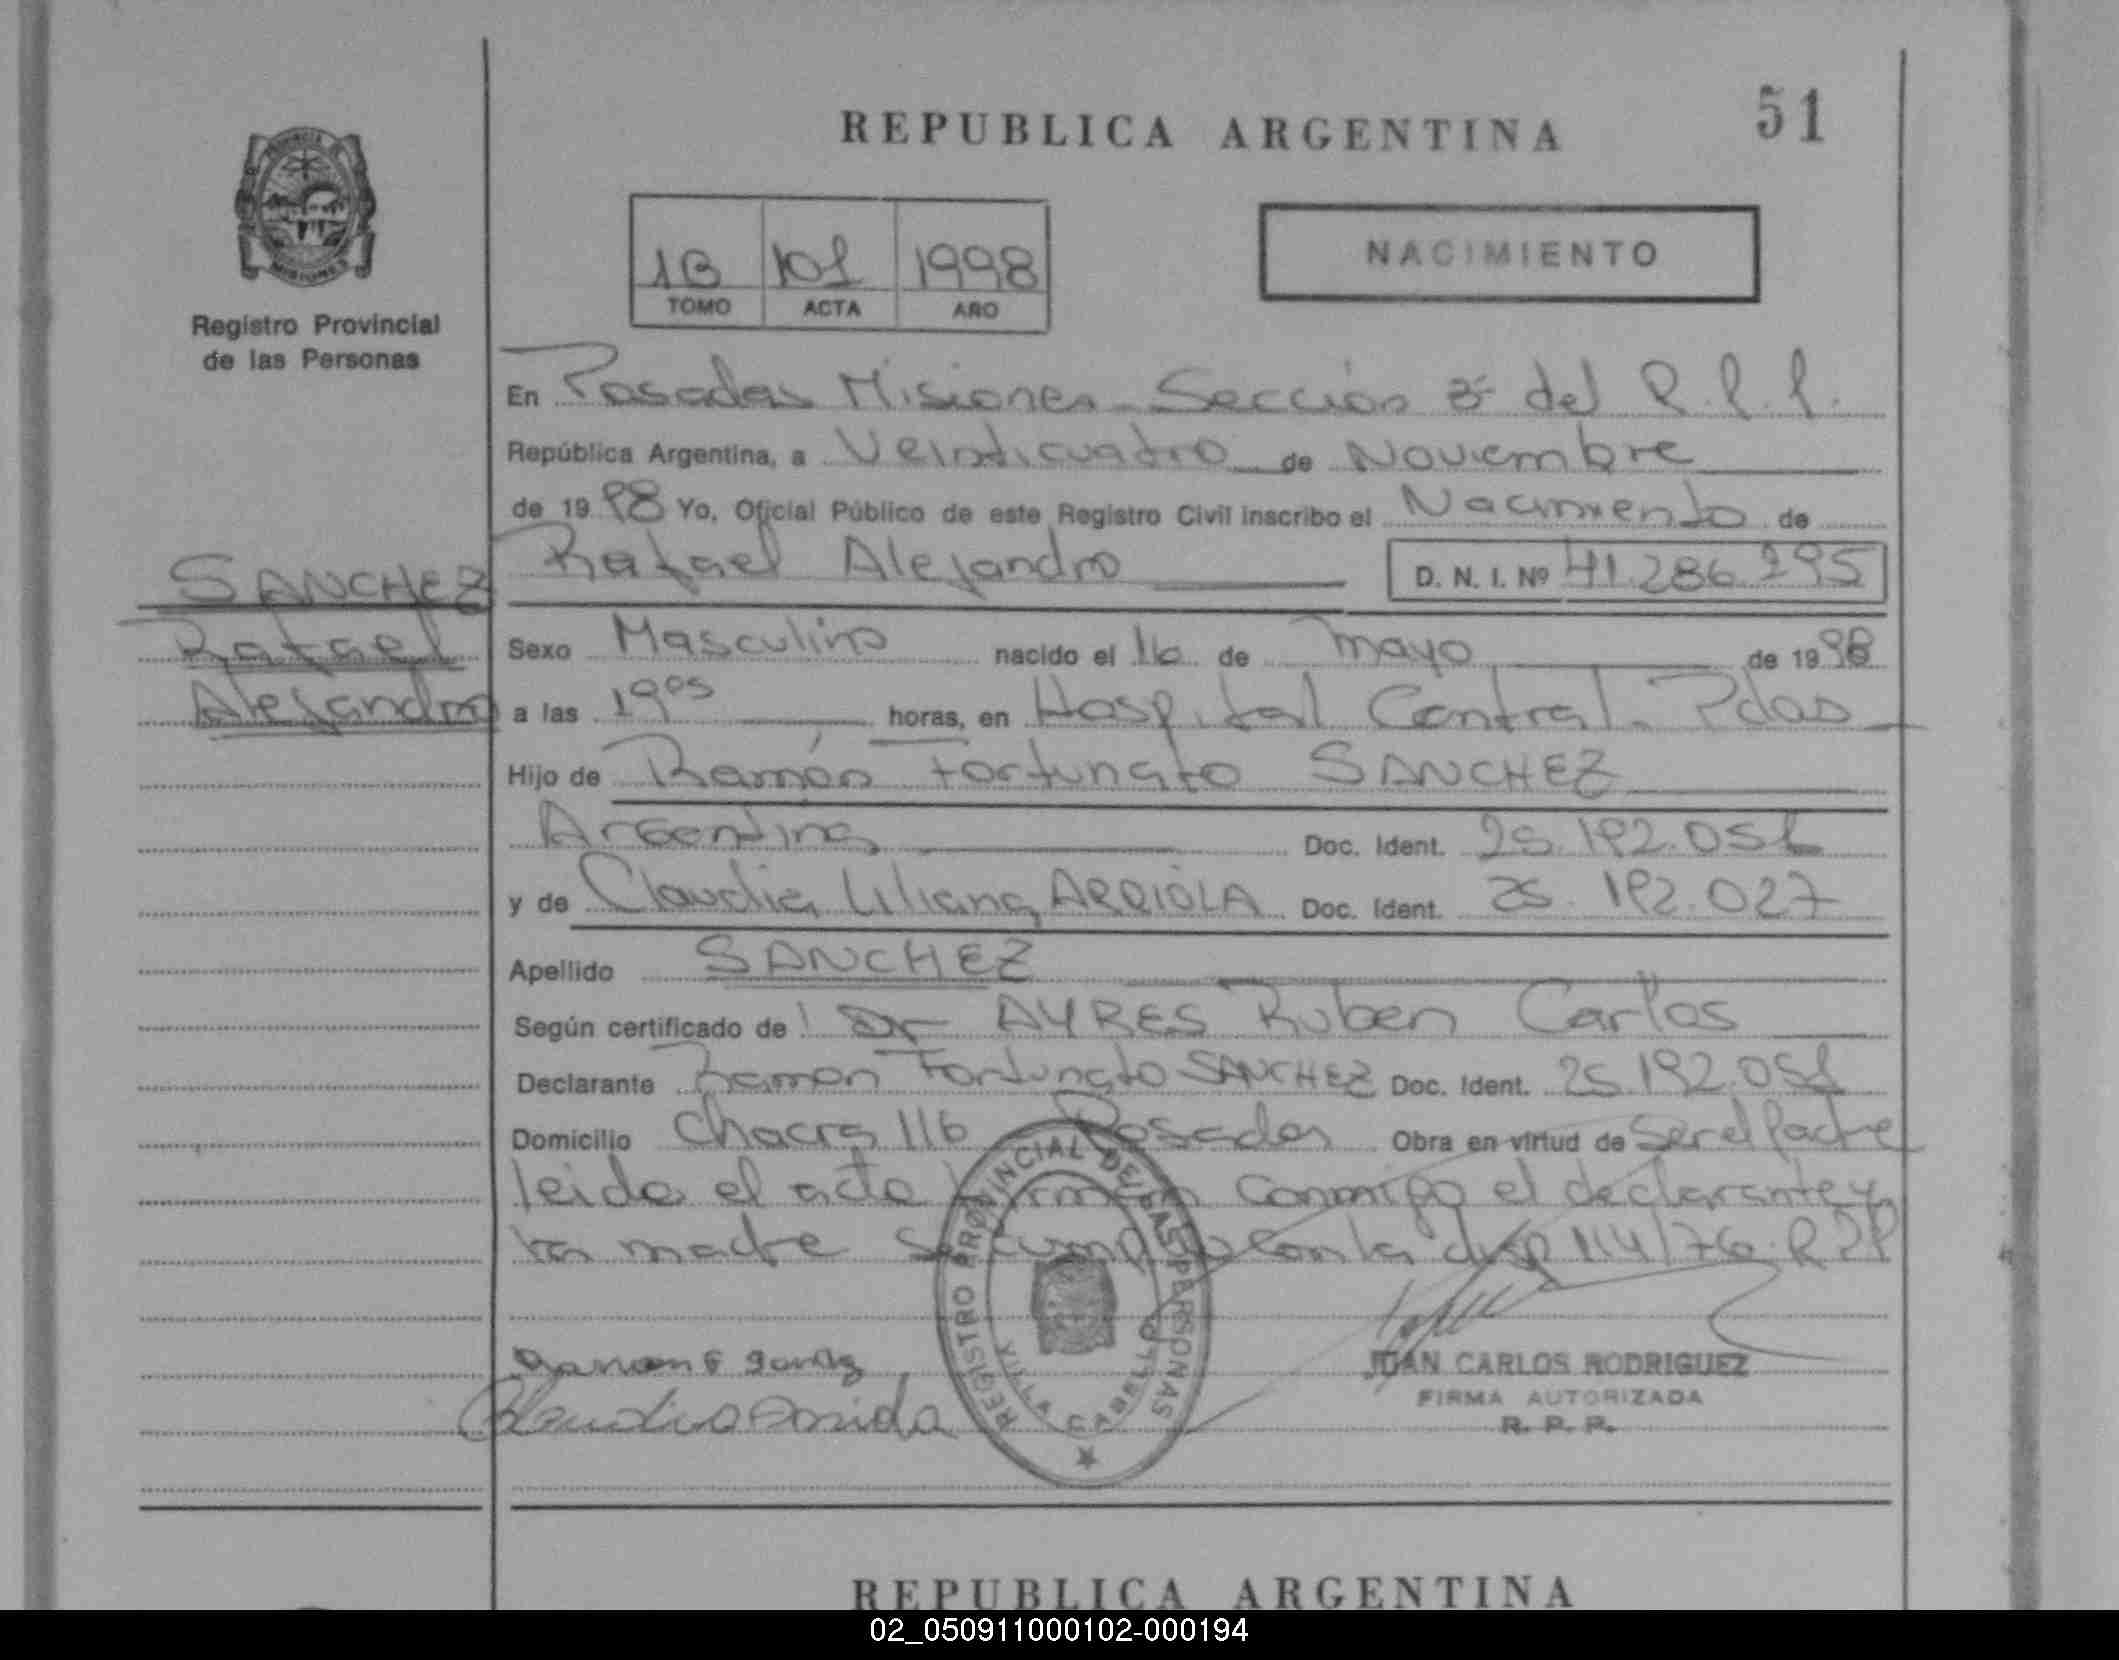 REPUBLICA ARGENTINA
51
1B 101 1998
TOMO ACTA AÑO
NACIMIENTO
Registro Provincial
de las Personas
En Posadas Misiones - Sección 3ª del R.P.P.
República Argentina, a Veinticuatro de Noviembre
de 1998 Yo, Oficial Público de este Registro Civil inscribo el Nacimiento de
SANCHEZ
Rafael
Alejandro
Rafael Alejandro D. N. I. Nº 41.286.295
Sexo Masculino nacido el 16 de mayo de 1998
a las 19⁰⁵ horas, en Hospital Central. Pdas
Hijo de Ramón Fortunato SANCHEZ
Argentina Doc. Ident. 25.192.051
y de Claudia Liliana ARRIOLA Doc. Ident. 25.192.027
Apellido SANCHEZ
Según certificado de Dr AYRES Ruben Carlos
Declarante Ramon Fortunato SANCHEZ Doc. Ident. 25.192.051
Domicilio Chacra 116 Posadas Obra en virtud de ser el Padre
leida el acta firman conmigo el declarante y
la madre se cumplio con la disp 114/76. R.P.P
REGISTRO PROVINCIAL DE LAS PERSONAS
VILLA CABELLO
JUAN CARLOS RODRIGUEZ
FIRMA AUTORIZADA
R. P. P.
REPUBLICA ARGENTINA
02_050911000102-000194